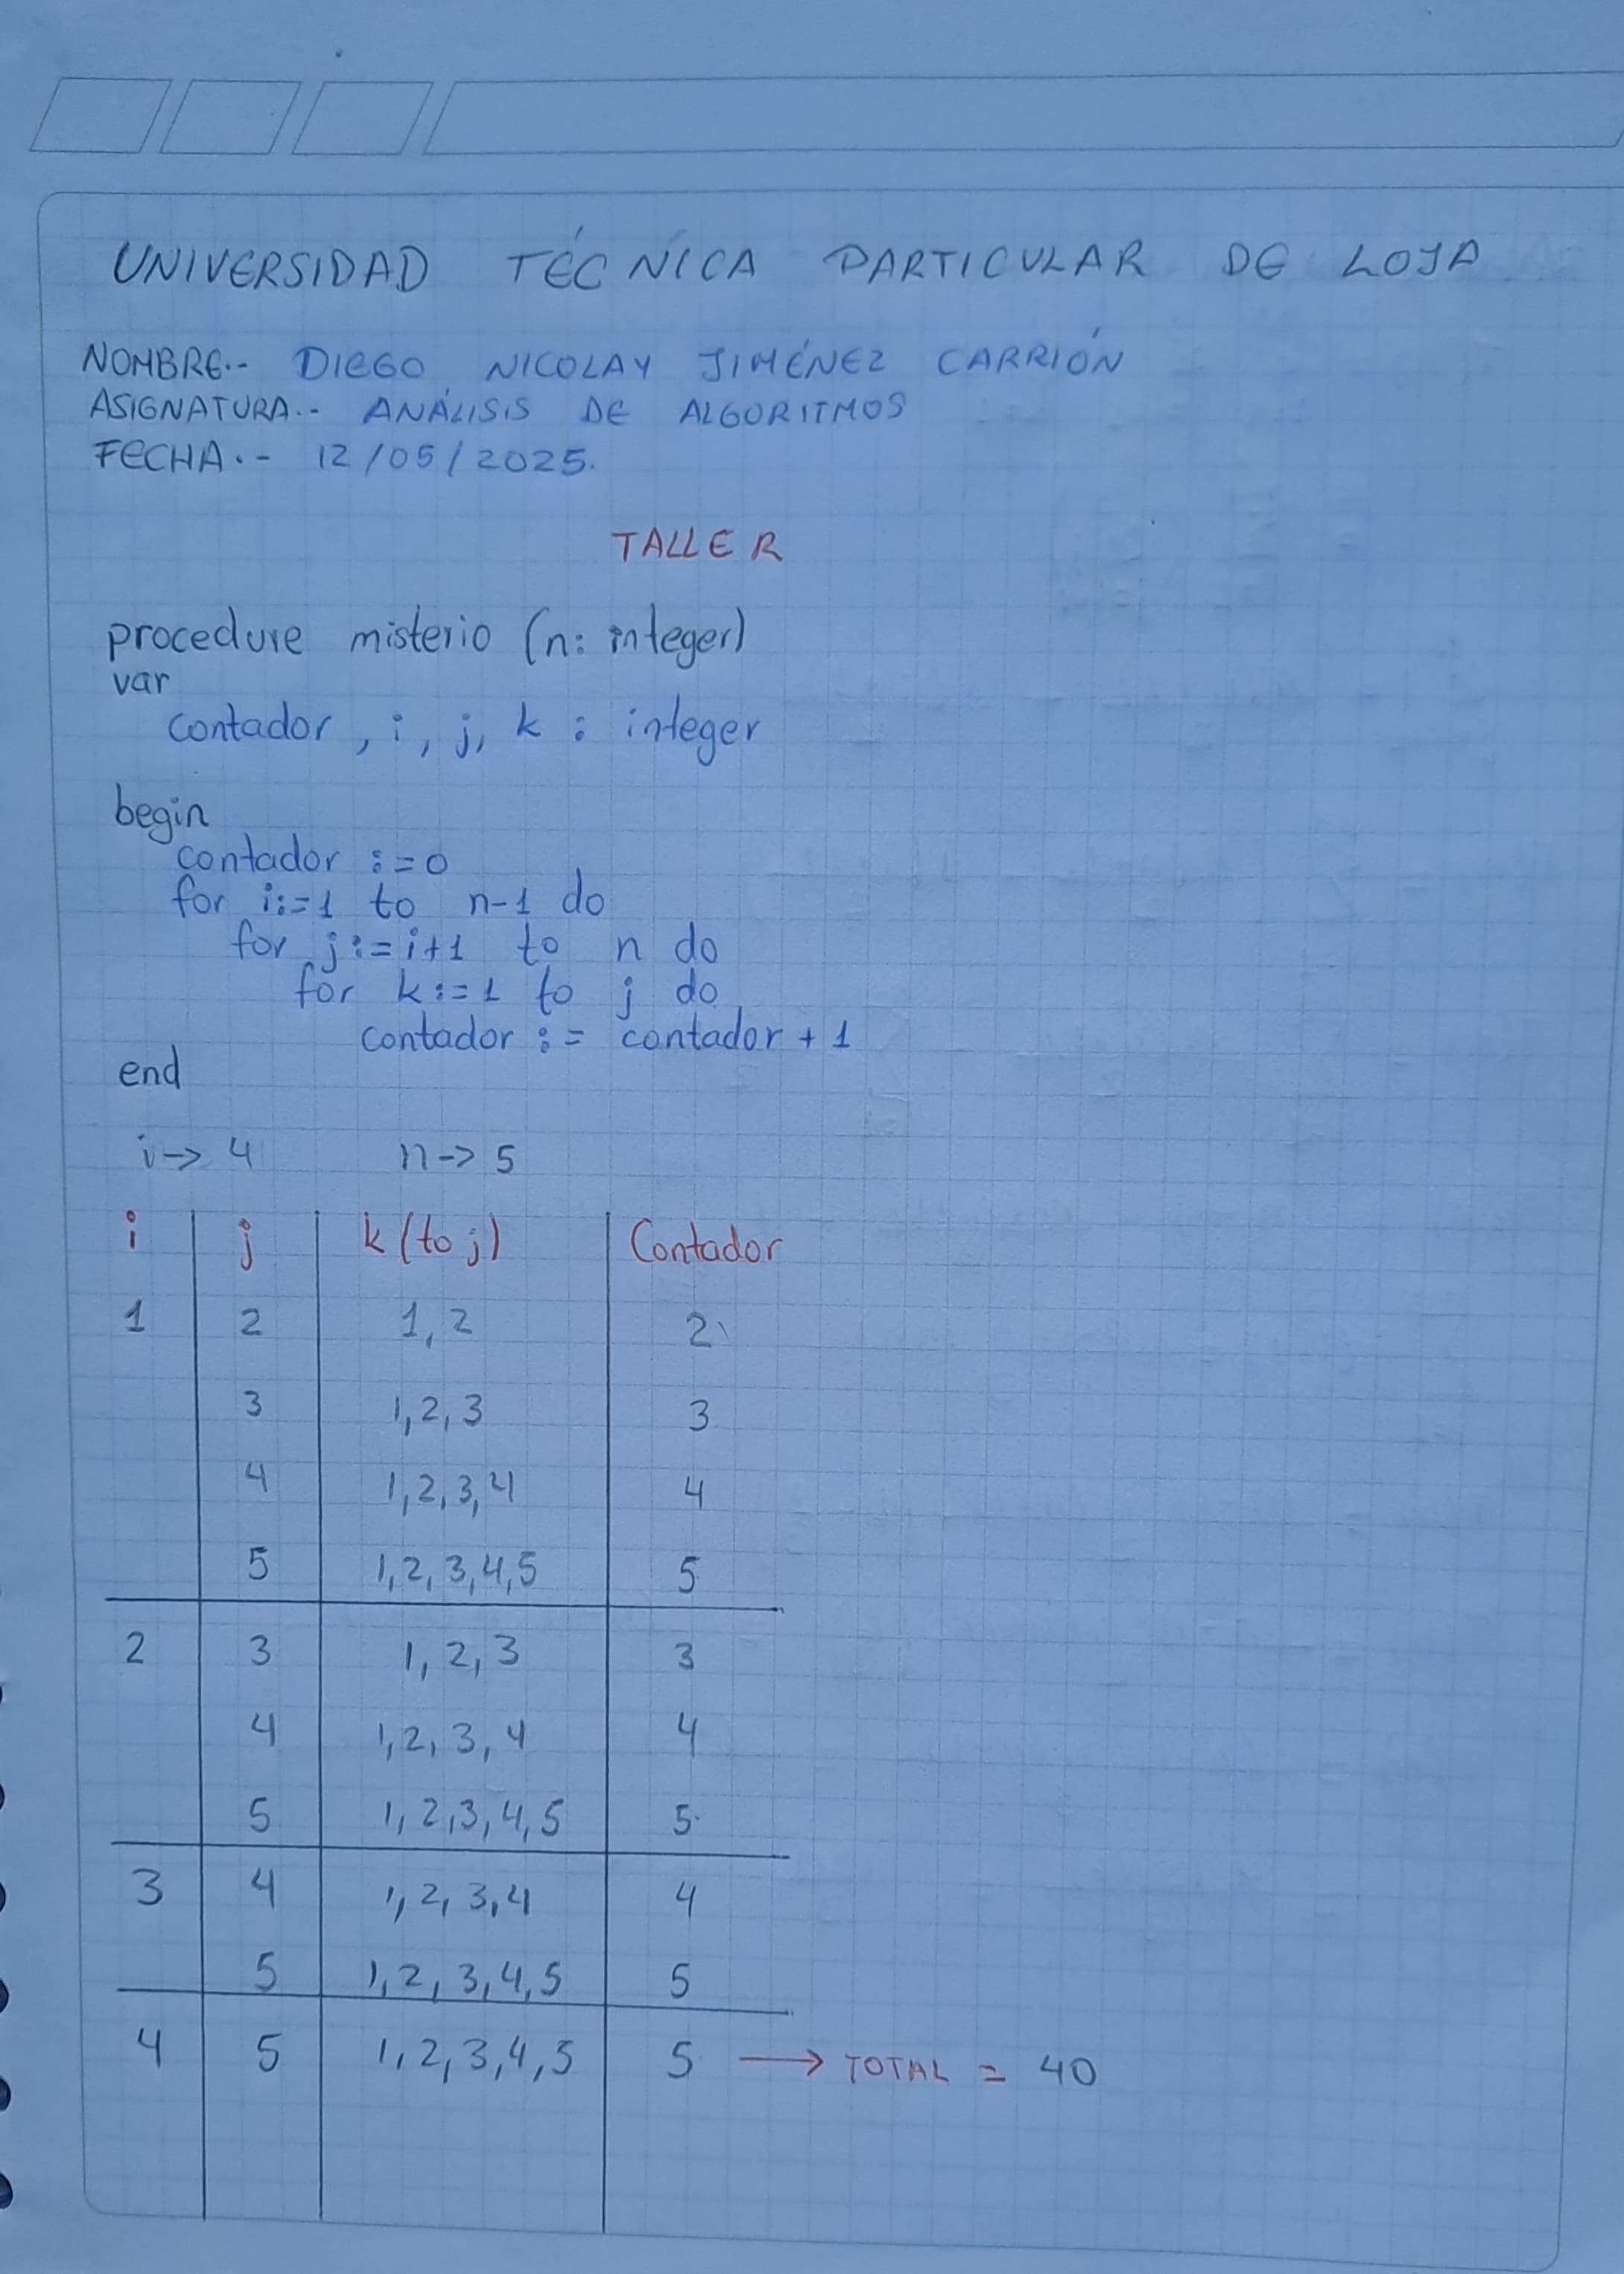 UNIVERSIDAD TÉCNICA PARTICULAR DE LOJA
NOMBRE.- DIEGO NICOLAY JIMÉNEZ CARRIÓN
ASIGNATURA.- ANÁLISIS DE ALGORITMOS
FECHA.- 12/05/2025.
TALLER
procedure misterio (n: integer)
var
contador, i, j, k : integer
begin
contador := 0
for i:=1 to n-1 do
for j:=i+1 to n do
for k:=1 to j do
contador := contador + 1
end
i -> 4 n -> 5
i j k (to j) Contador
1 2 1, 2 2
3 1, 2, 3 3
4 1, 2, 3, 4 4
5 1, 2, 3, 4, 5 5
2 3 1, 2, 3 3
4 1, 2, 3, 4 4
5 1, 2, 3, 4, 5 5
3 4 1, 2, 3, 4 4
5 1, 2, 3, 4, 5 5
4 5 1, 2, 3, 4, 5 5 → TOTAL = 40